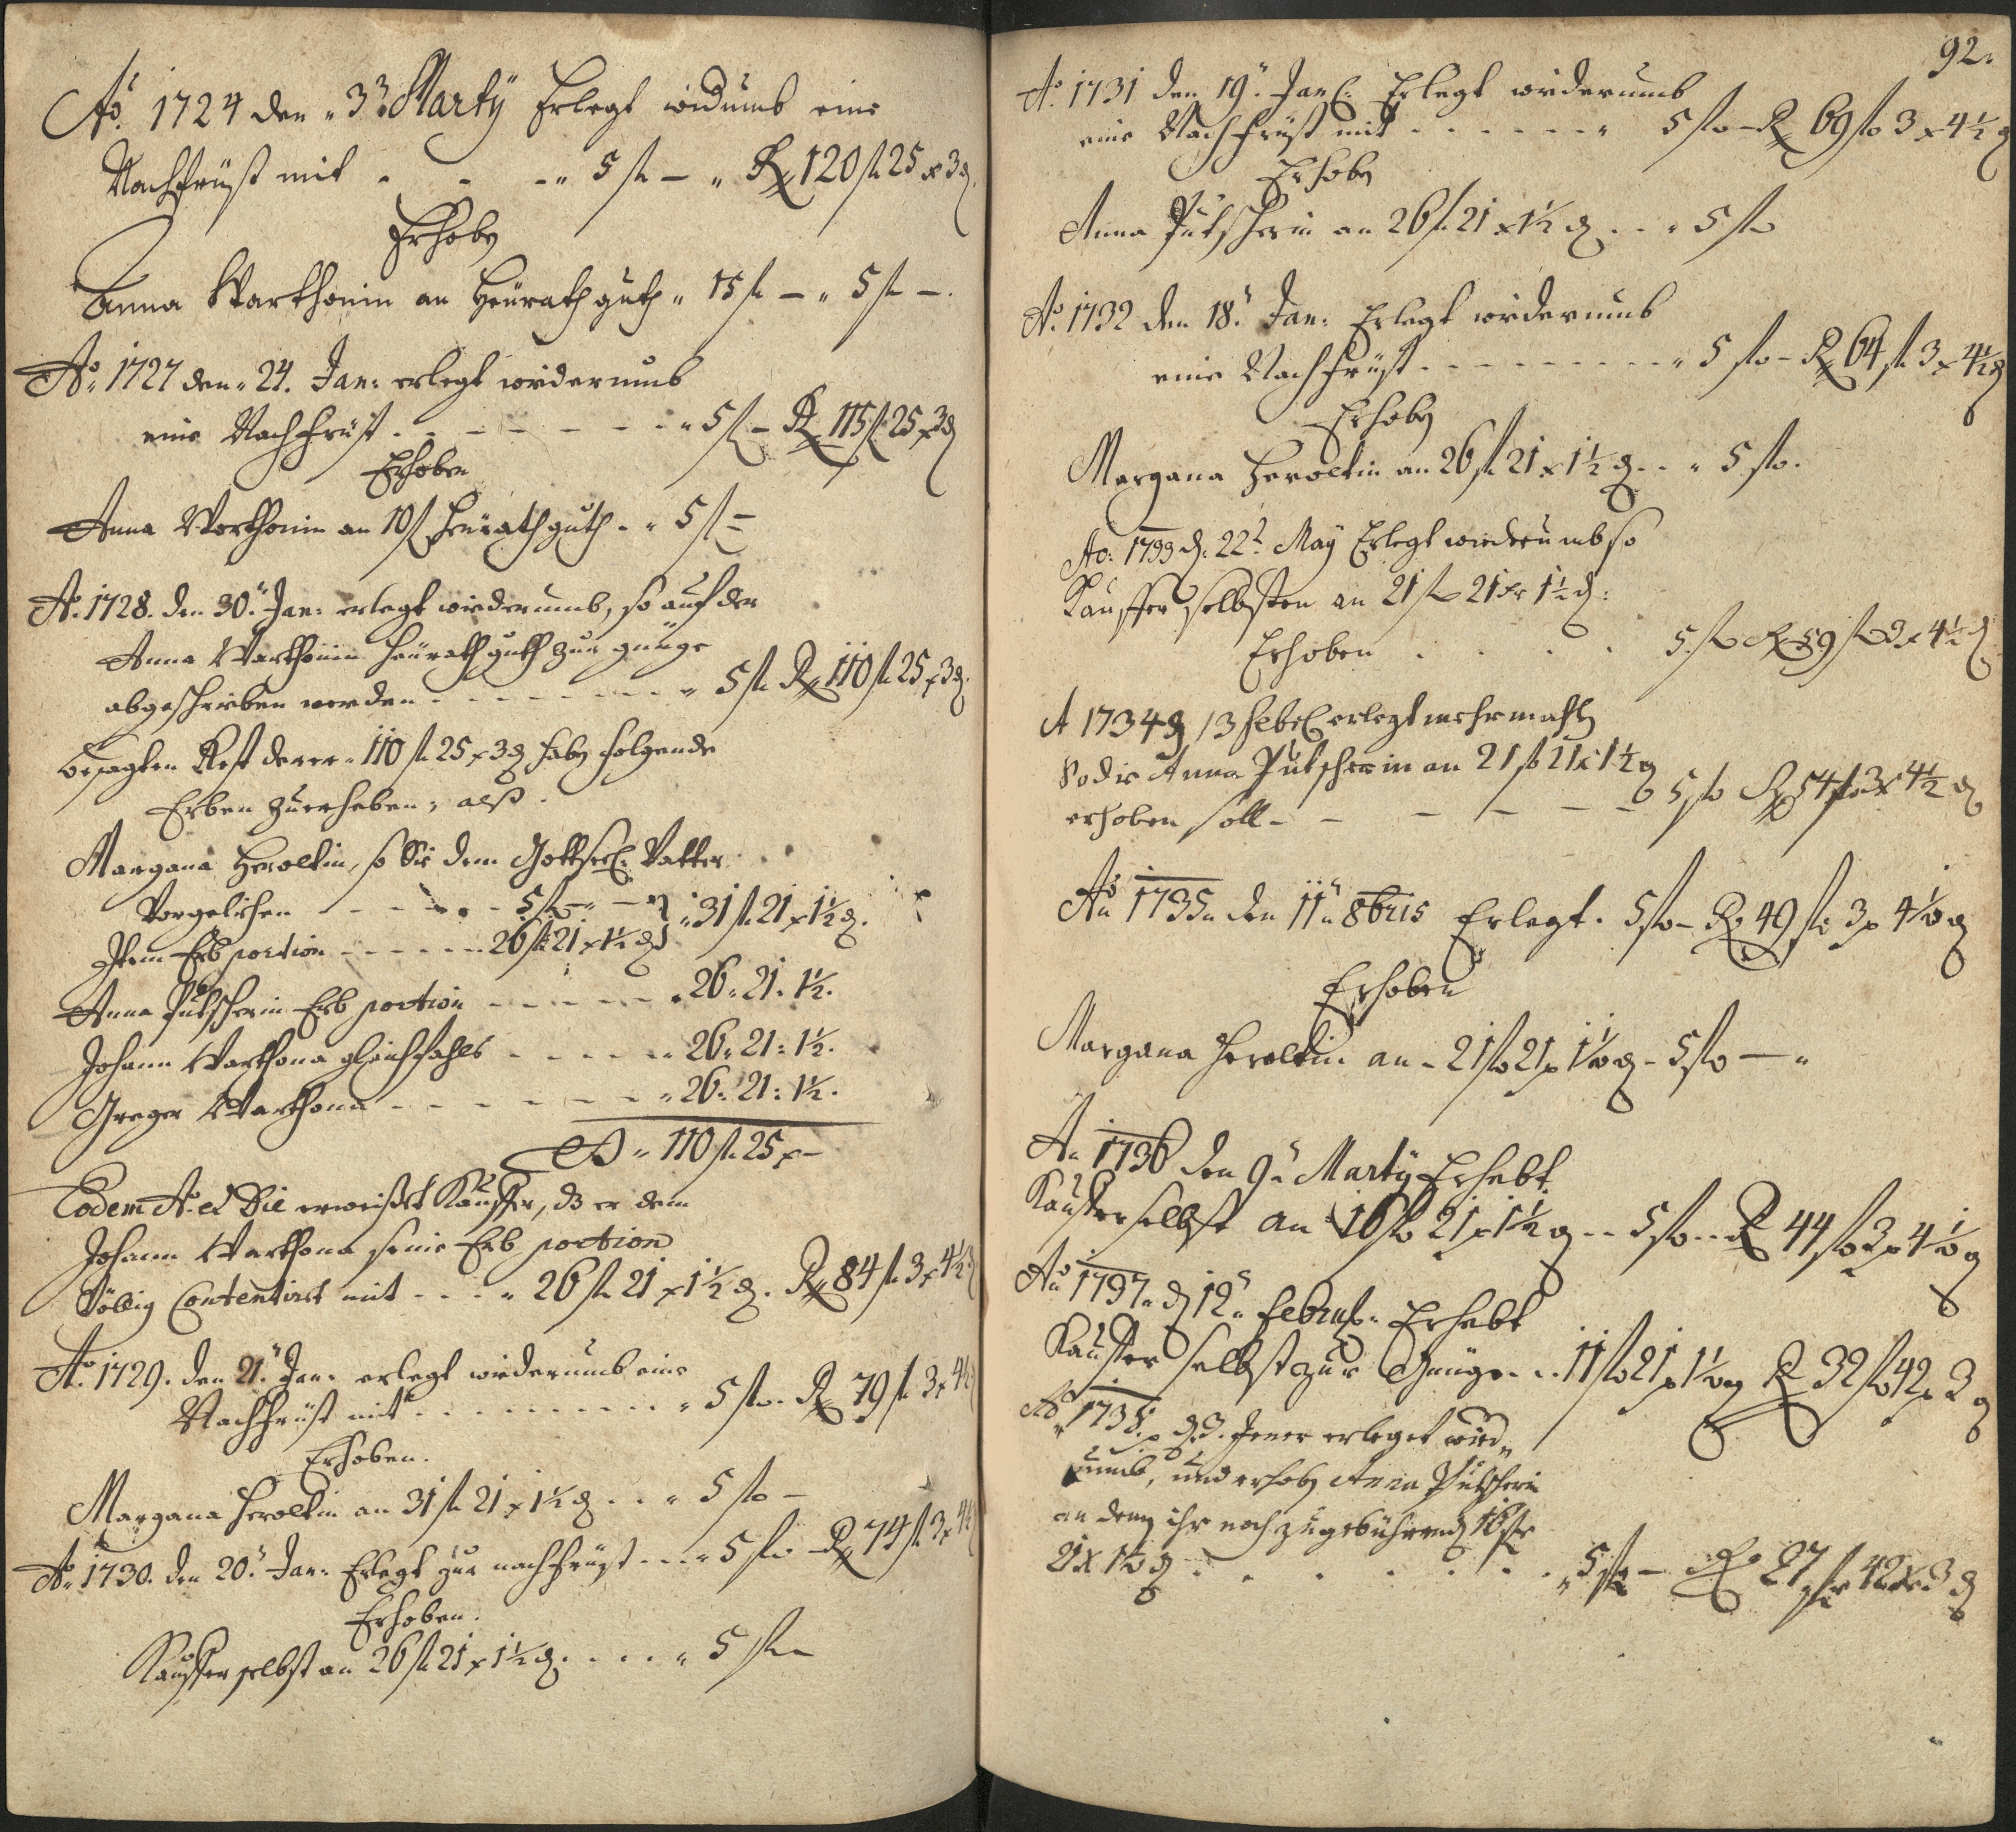 Aō. 1724 den 3t. Marty Erlegt widumb eine
Nachfrüst mit . . . 5 fl — Rx 120 fl 25 x 3 ₰
Erhoben
Anna Warthonin an Heürath guth 15 fl — 5 fl —.
Aō. 1727 den 24. Jan: erlegt wiederumb
eine Nachfrüst . . . 5 fl — Rx 115 fl 25 x 3 ₰
Erhoben
Anna Warthonin an 10 fl Heürath guth . 5 fl —
Aō. 1728. den 30. Jan: erlegt wiederumb, so auf der
Anna Warthonin Heürath guth zur gnüge
abgeschrieben werden . . . 5 fl Rx 110 fl 25 x 3 ₰.
besagten Rest derer 110 fl 25 x 3 ₰ haben folgende
Erben zuerheben, alß.
Margana Heroltin, so Sie dem Gottseel: Vatter
Vorgeliehen . . . 5 fl — 31 fl 21 x 1½ ₰.
Item Erb portion . . . 26 fl 21 x 1½ ₰
Anna Putscherin Erb portion . . . 26. 21. 1½.
Johann Warthona gleichfahls . . . 26. 21: 1½.
Greger Warthona . . . 26. 21: 1½.
110 fl 25 x —
Eodem Aō. et Die erweißet Kauffer, dß er dem
Johann Warthona seine Erb portion
Völlig Contentiret mit . . . 26 fl 21 x 1½ ₰. Rx 84 fl 3 x 4½ ₰
Aō. 1729. den 21. Jan: erlegt wiederumb eine
Nachfrüst mit . . . 5 fl. Rx 79 fl 3 x 4½
Erhoben.
Margana Heroltin an 31 fl 21 x 1½ ₰ . . 5 fl —
Aō. 1730. den 20. Jan: Erlegt zur nachfrüst . . . 5 fl — Rx 74 fl 3 x 4½
Erhoben.
Kauffer selbst an 26 fl 21 x 1½ ₰ . . . 5 fl —
92.
Aō. 1731 den 19. Jan: Erlegt wiederumb
eine Nachfrüst mit . . . 5 fl — Rx 69 fl 3 x 4½ ₰
Erhoben
Anna Putscherin an 26 fl 21 x 1½ ₰ . . 5 fl
Aō. 1732 den 18. Jan: Erlegt wiederumb
eine Nachfrüst . . . 5 fl — Rx 64 fl 3 x 4½ ₰
Erhoben
Margana Heroltin an 26 fl 21 x 1½ ₰ . . 5 fl.
Ao: 1733 d. 22t. May Erlegt wiederumb so
Kauffer selbsten an 21 fl 21 xr 1½ ₰:
Erhoben . . . 5 fl Rx 59 fl 3 x 4½ ₰
A 1734 d 13 Feb: erlegt mehrmahlen
So die Anna Putscherin an 21 fl 21 x 1½ ₰
erhoben soll — 5 fl Rx 54 fl 3 x 4½ ₰
Aō 1735 den 11 8bris Erlegt. 5 fl — Rx 49 fl 3 x 4½ ₰
Erhoben
Margana Heroltin an 21 fl 21 x 1½ ₰ — 5 fl —
A. 1736 den 9. Marty Erhebt
Kauffer selbst an 16 fl 21 x 1½ ₰ . . 5 fl . . R 44 fl 3 x 4½ ₰
Aō 1737 d 12. Febru: Erhebt
Kauffer selbst zur Gnüge . . 11 fl 21 x 1½ ₰ R 32 fl 42 x 3 ₰
Aō 1738. d. 3. Jener erleget wied
umb, und erhoben Anna Putscherin
an denen ihr noch zugebührend 16 fl
21 x 1½ ₰ . . . 5 fl — R 27 fl 42 x 3 ₰